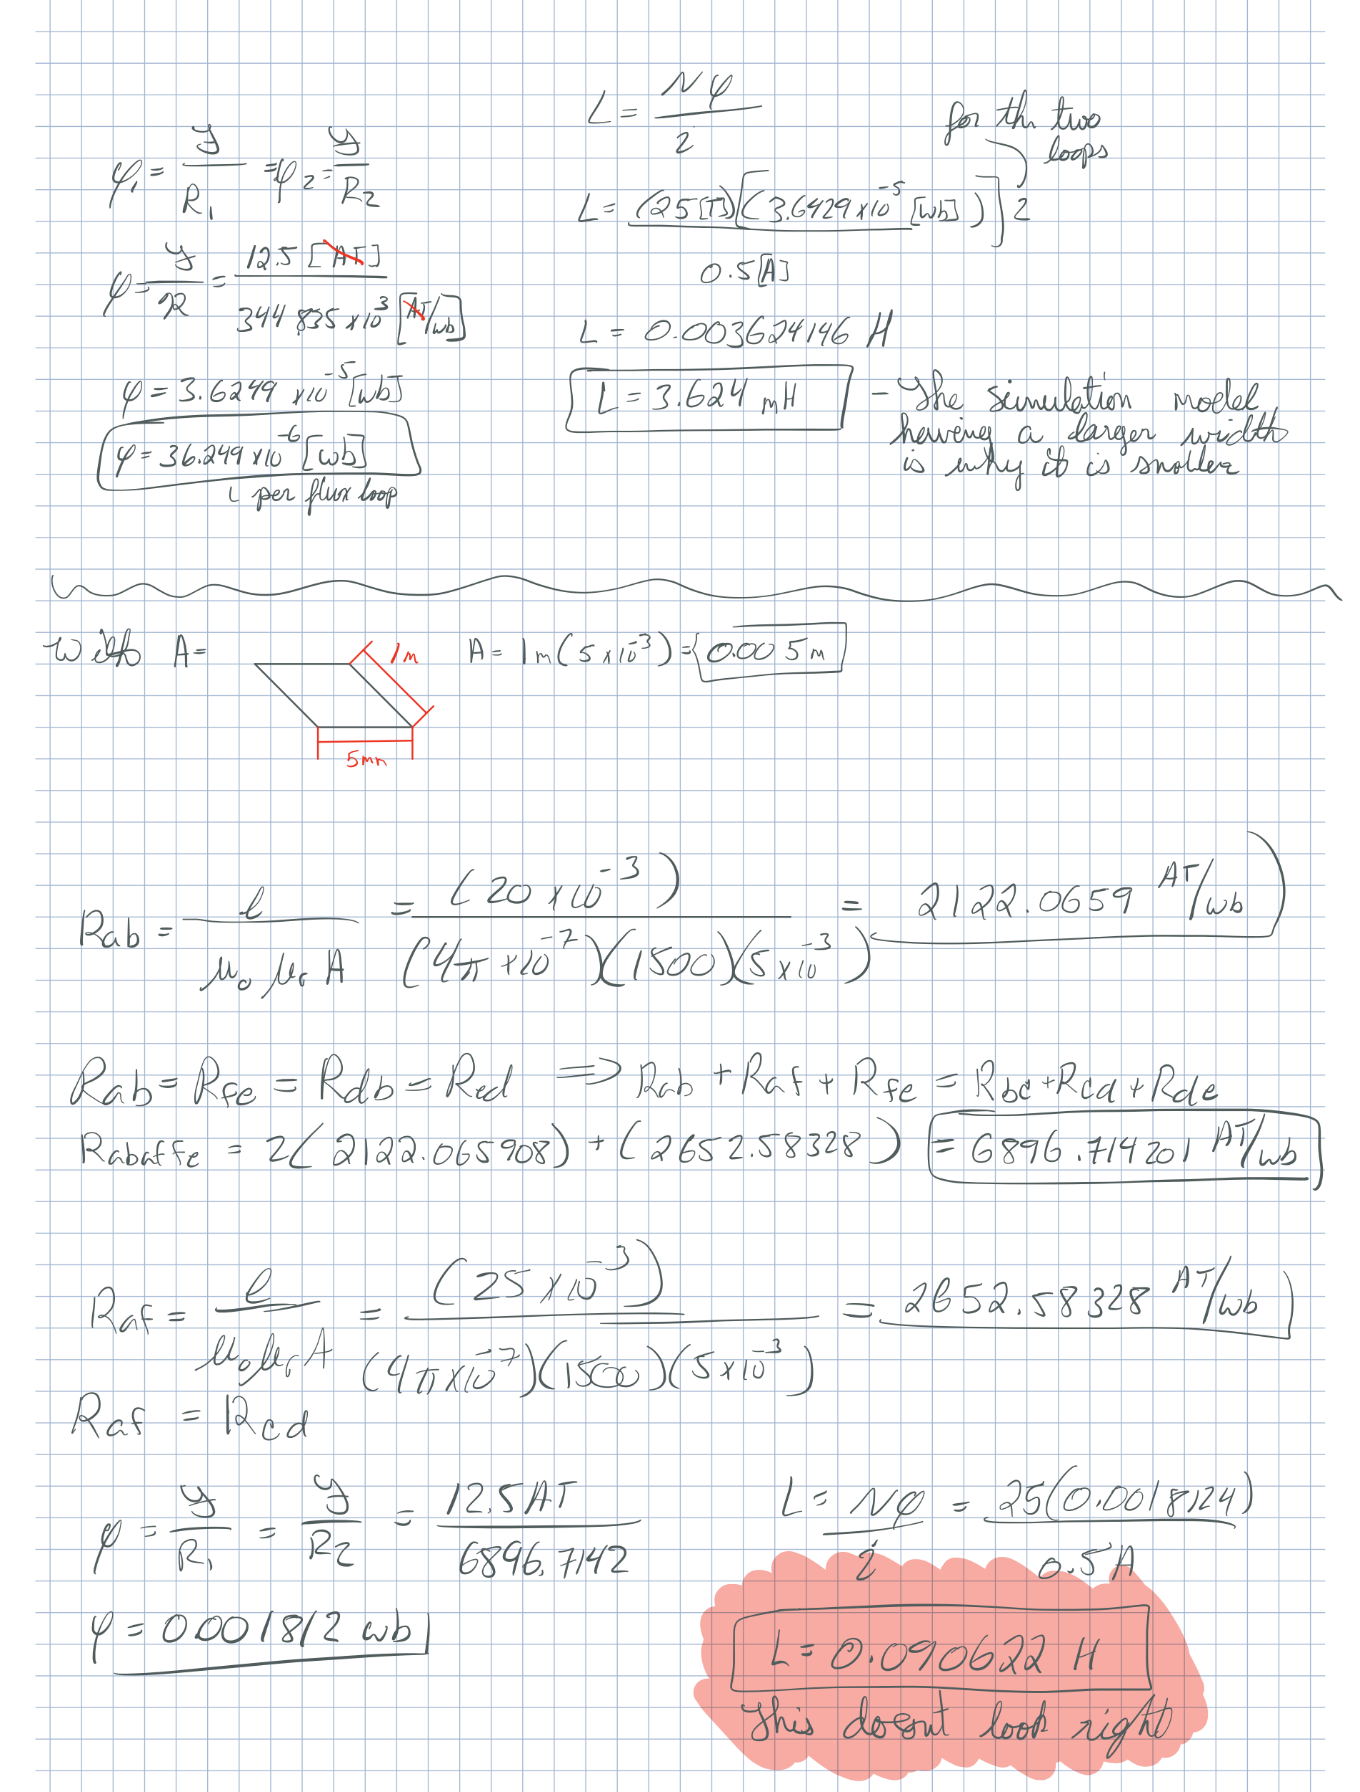 φ₁ = ℱ/R₁ = φ₂ = ℱ/R₂
φ = ℱ/ℛ = 12.5 [AT] / 344 835 x10³ [AT/wb]
φ = 3.6249 x10⁻⁵ [wb]
φ = 36.249 x10⁻⁶ [wb]
per flux loop
L = Nφ/i
for th two
loops
L = (25[T])[(3.6429 x10⁻⁵ [wb])]2 / 0.5[A]
L = 0.003624146 H
L = 3.624 mH
- The simulation model
having a larger width
is why it is smaller
With A =
1m
5mm
A = 1m(5x10⁻³) = 0.005m
Rab = ℓ/μ₀μᵣA = (20 x10⁻³) / (4π x10⁻⁷)(1500)(5x10⁻³) = 2122.0659 AT/wb
Rab = Rfe = Rdb = Red ⇒ Rab + Raf + Rfe = Rbc + Rcd + Rde
Rabaffe = 2(2122.065908) + (2652.58328) = 6896.714201 AT/wb
Raf = ℓ/μ₀μᵣA = (25 x10⁻³) / (4πx10⁻⁷)(1500)(5x10⁻³) = 2652.58328 AT/wb
Raf = Rcd
φ = ℱ/R₁ = ℱ/R₂ = 12.5AT / 6896.7142
φ = 0.001812 wb
L = Nφ/i = 25(0.0018124) / 0.5A
L = 0.090622 H
This doesnt look right